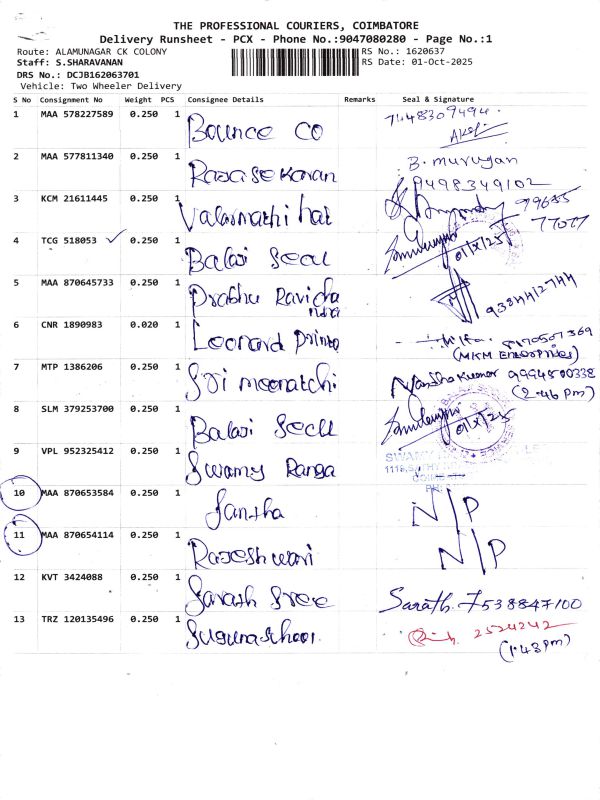 THE PROFESSIONAL COURIERS, COIMBATORE
Delivery Runsheet - PCX - Phone No.:9047080280 - Page No.:1
Route: ALAMUNAGAR CK COLONY RS No.: 1620637
Staff: S.SHARAVANAN RS Date: 01-Oct-2025
DRS No.: DCJB162063701
Vehicle: Two Wheeler Delivery
S No Consignment No Weight PCS Consignee Details Remarks Seal & Signature
1 MAA 578227589 0.250 1 Bounce CO 7448309494
2 MAA 577811340 0.250 1 Rajasekaran B. murugan
9498349102
3 KCM 21611445 0.250 1
4 TCG 518053 0.250 1 Balaji 01/X/25
5 MAA 870645733 0.250 1 Prabhu Ravicha
ndra 9384412744
6 CNR 1890983 0.020 1 Leonard
(MKM Enterprises)
7 MTP 1386206 0.250 1 Sri meenatchi Nandhakumar 9994500338
(2.46 Pm)
8 SLM 379253700 0.250 1 Balaji 01/X/25
9 VPL 952325412 0.250 1 Swamy Ranga SWAMY
10 MAA 870653584 0.250 1 Santha N/P
11 MAA 870654114 0.250 1 Rajeshwari N/P
12 KVT 3424088 0.250 1 Sarath Sree Sarath. 7538847100
13 TRZ 120135496 0.250 1 2524242
(1.43 Pm)